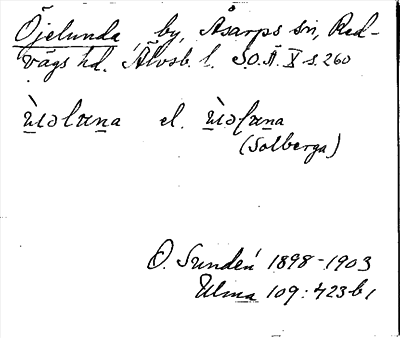 Öjelunda, by, Åsarps sn, Red-
vägs hd. Älvsb. l. S.O.Ä. X s. 260
el.
(Solberga)
O. Sundén 1898-1903
Ulma 109:423 b 1